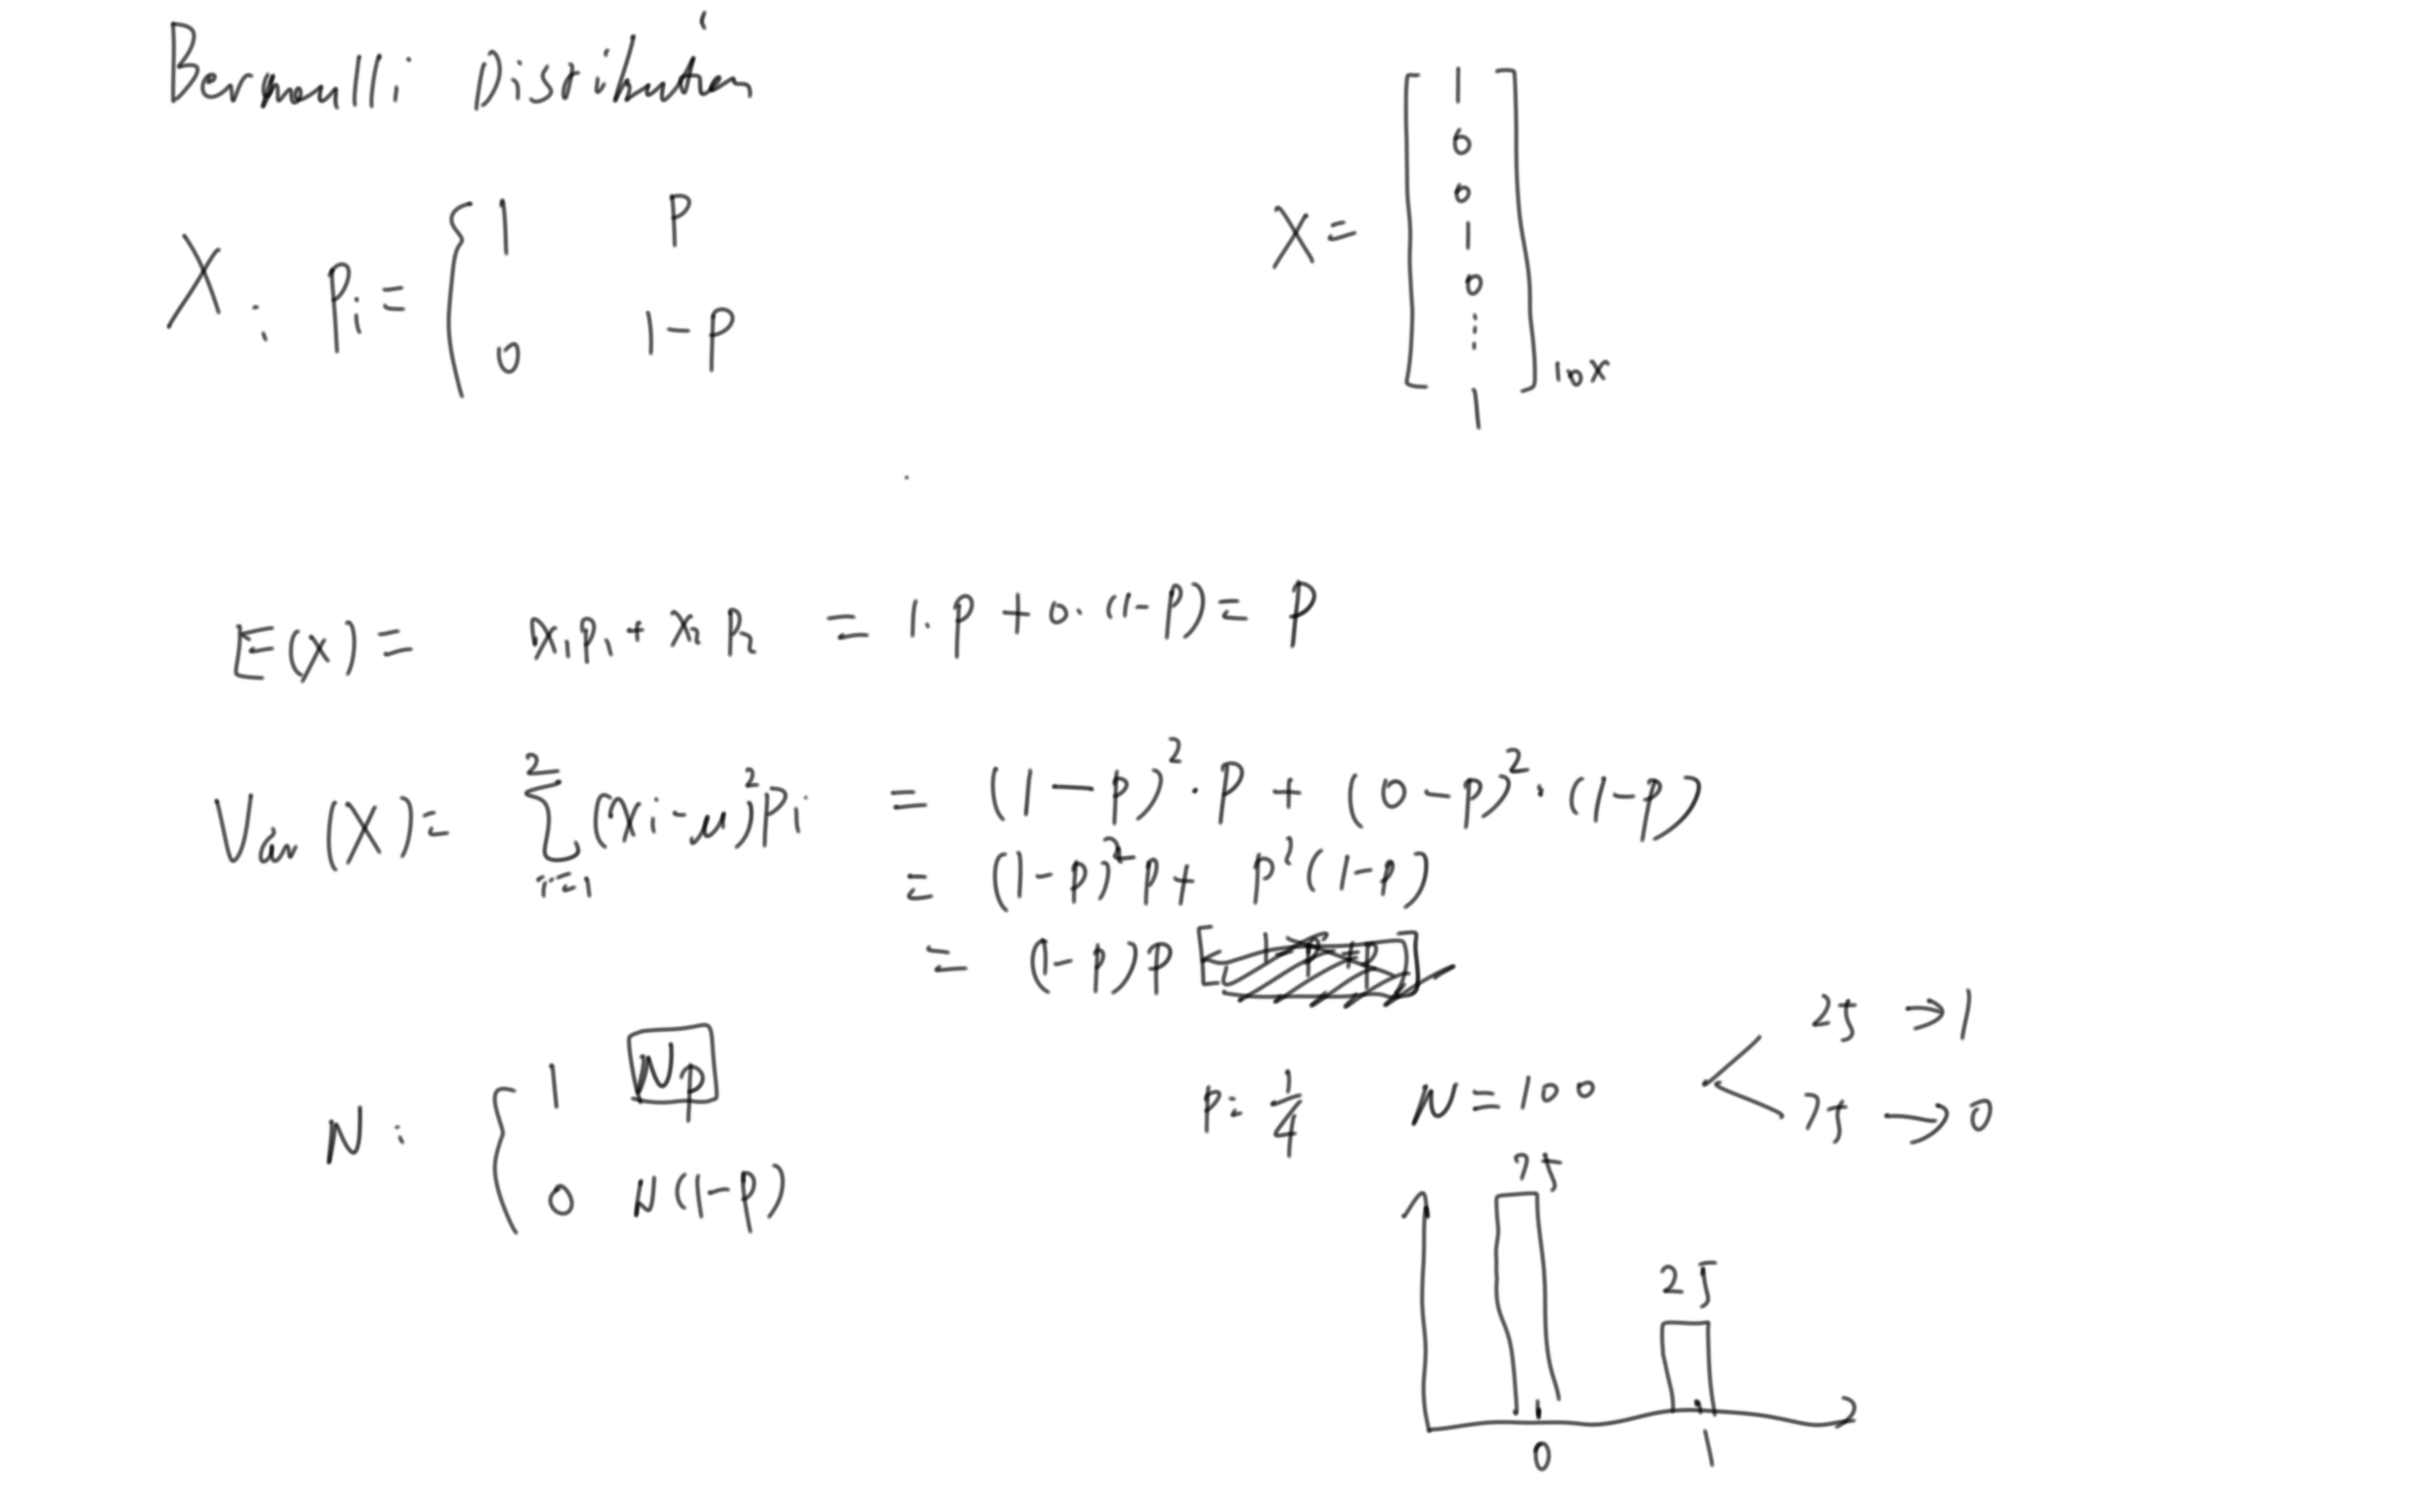 Bernoulli Distribution
X : Pi = { 1 P
0 1-P
X = [ 1 0 0 1 0 ⋮ 1 ] 100x
E(X) = X1P1 + X2P2 = 1·P + 0·(1-P) = P
Var(X) = 2 Σ i=1 (Xi-μ)²Pi = (1-P)²·P + (0-P)²·(1-P)
= (1-P)²P + P²(1-P)
= (1-P)P
N : { 1 NP
0 N(1-P)
P = 1/4 N = 100 < 25 → 1
75 → 0
75
25
0 1